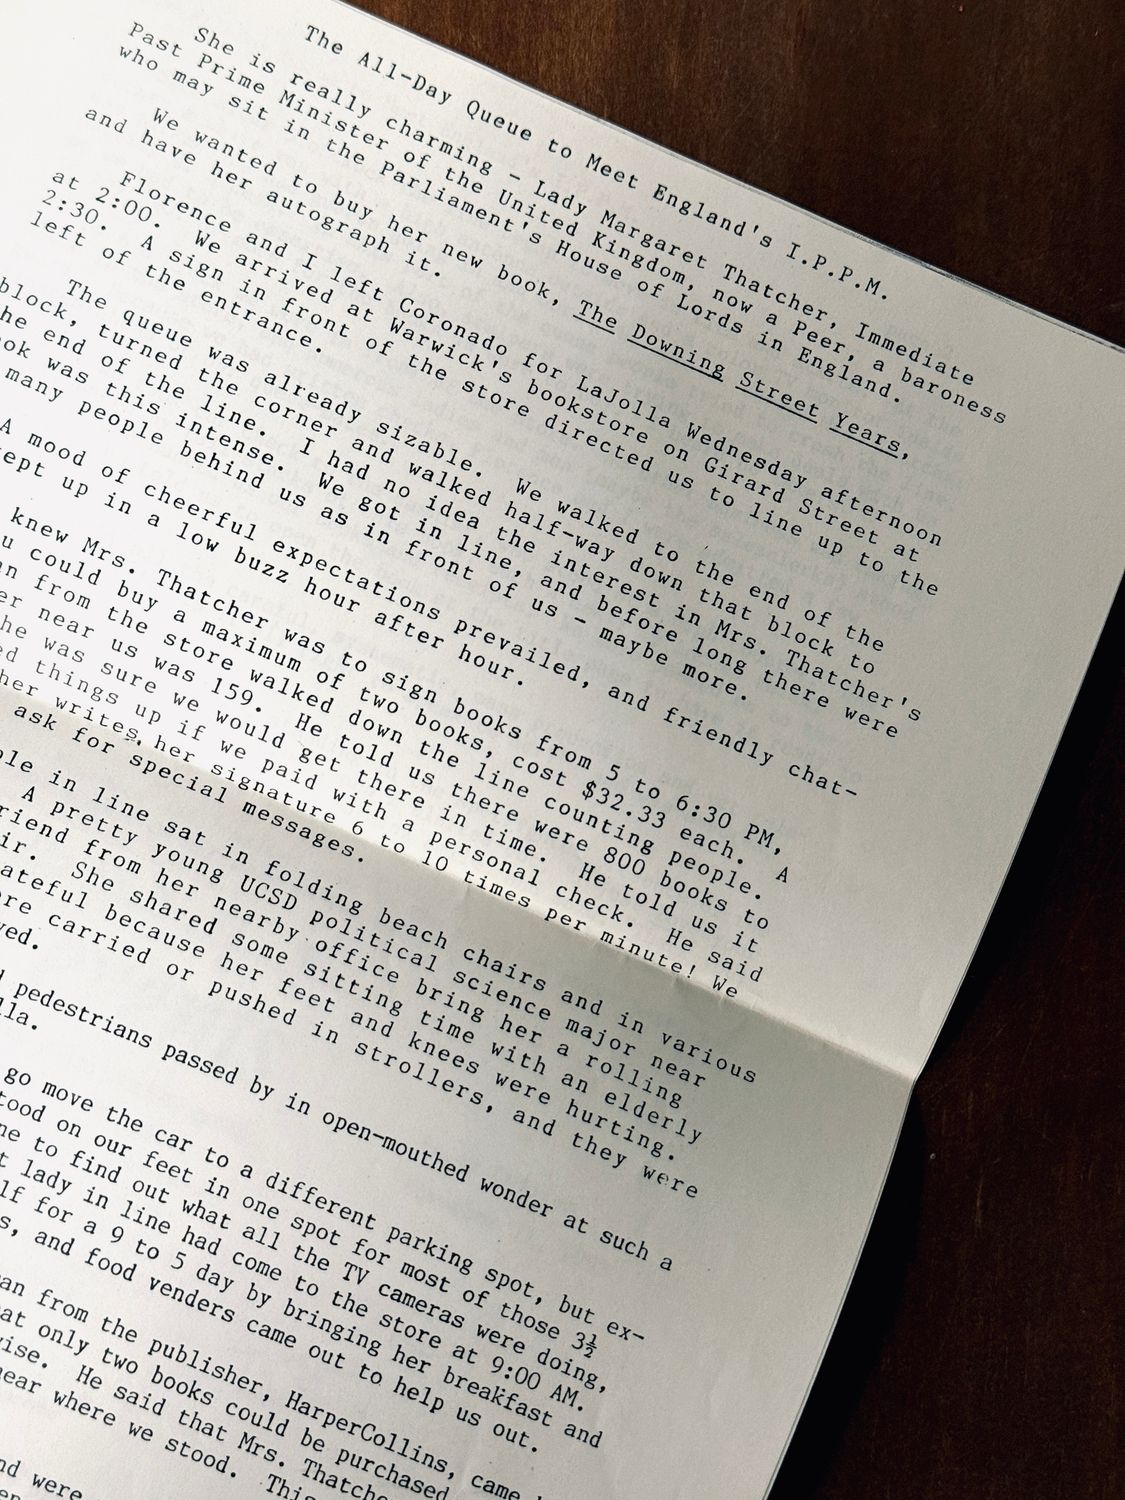 The All-Day Queue to Meet England's I.P.P.M.
She is really charming - Lady Margaret Thatcher, Immediate
Past Prime Minister of the United Kingdom, now a Peer, a baroness
who may sit in the Parliament's House of Lords in England.
We wanted to buy her new book, The Downing Street Years,
and have her autograph it.
Florence and I left Coronado for LaJolla Wednesday afternoon
at 2:00. We arrived at Warwick's bookstore on Girard Street at
2:30. A sign in front of the store directed us to line up to the
left of the entrance.
The queue was already sizable. We walked to the end of the
block, turned the corner and walked half-way down that block to
the end of the line. I had no idea the interest in Mrs. Thatcher's
was this intense. We got in line, and before long there were
many people behind us as in front of us - maybe more.
A mood of cheerful expectations prevailed, and friendly chat-
up in a low buzz hour after hour.
knew Mrs. Thatcher was to sign books from 5 to 6:30 PM,
could buy a maximum of two books, cost $32.33 each. A
from the store walked down the line counting people.
near us was 159. He told us there were 800 books to
he was sure we would get there in time. He told us it
things up if we paid with a personal check. He said
writes her signature 6 to 10 times per minute! We
ask for special messages.
in line sat in folding beach chairs and in various
A pretty young UCSD political science major near
from her nearby office bring her a rolling
She shared some sitting time with an elderly
because her feet and knees were hurting.
carried or pushed in strollers, and they were
pedestrians passed by in open-mouthed wonder at such a
go move the car to a different parking spot, but ex-
on our feet in one spot for most of those 3½
to find out what all the TV cameras were doing,
lady in line had come to the store at 9:00 AM.
for a 9 to 5 day by bringing her breakfast and
and food venders came out to help us out.
from the publisher, HarperCollins, came
only two books could be purchased
He said that Mrs.
near where we stood. This
were